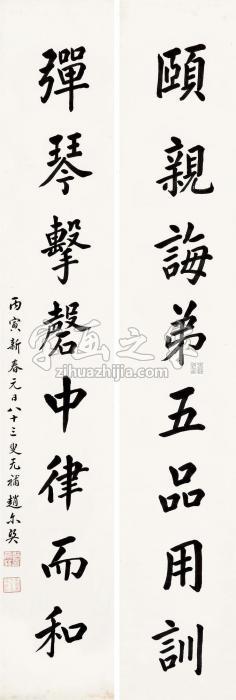 頤親誨弟五品用訓
彈琴擊磬中律而和
丙寅新春元日八十三叟无補趙尔巽
字画之家
zihuazhijia.com